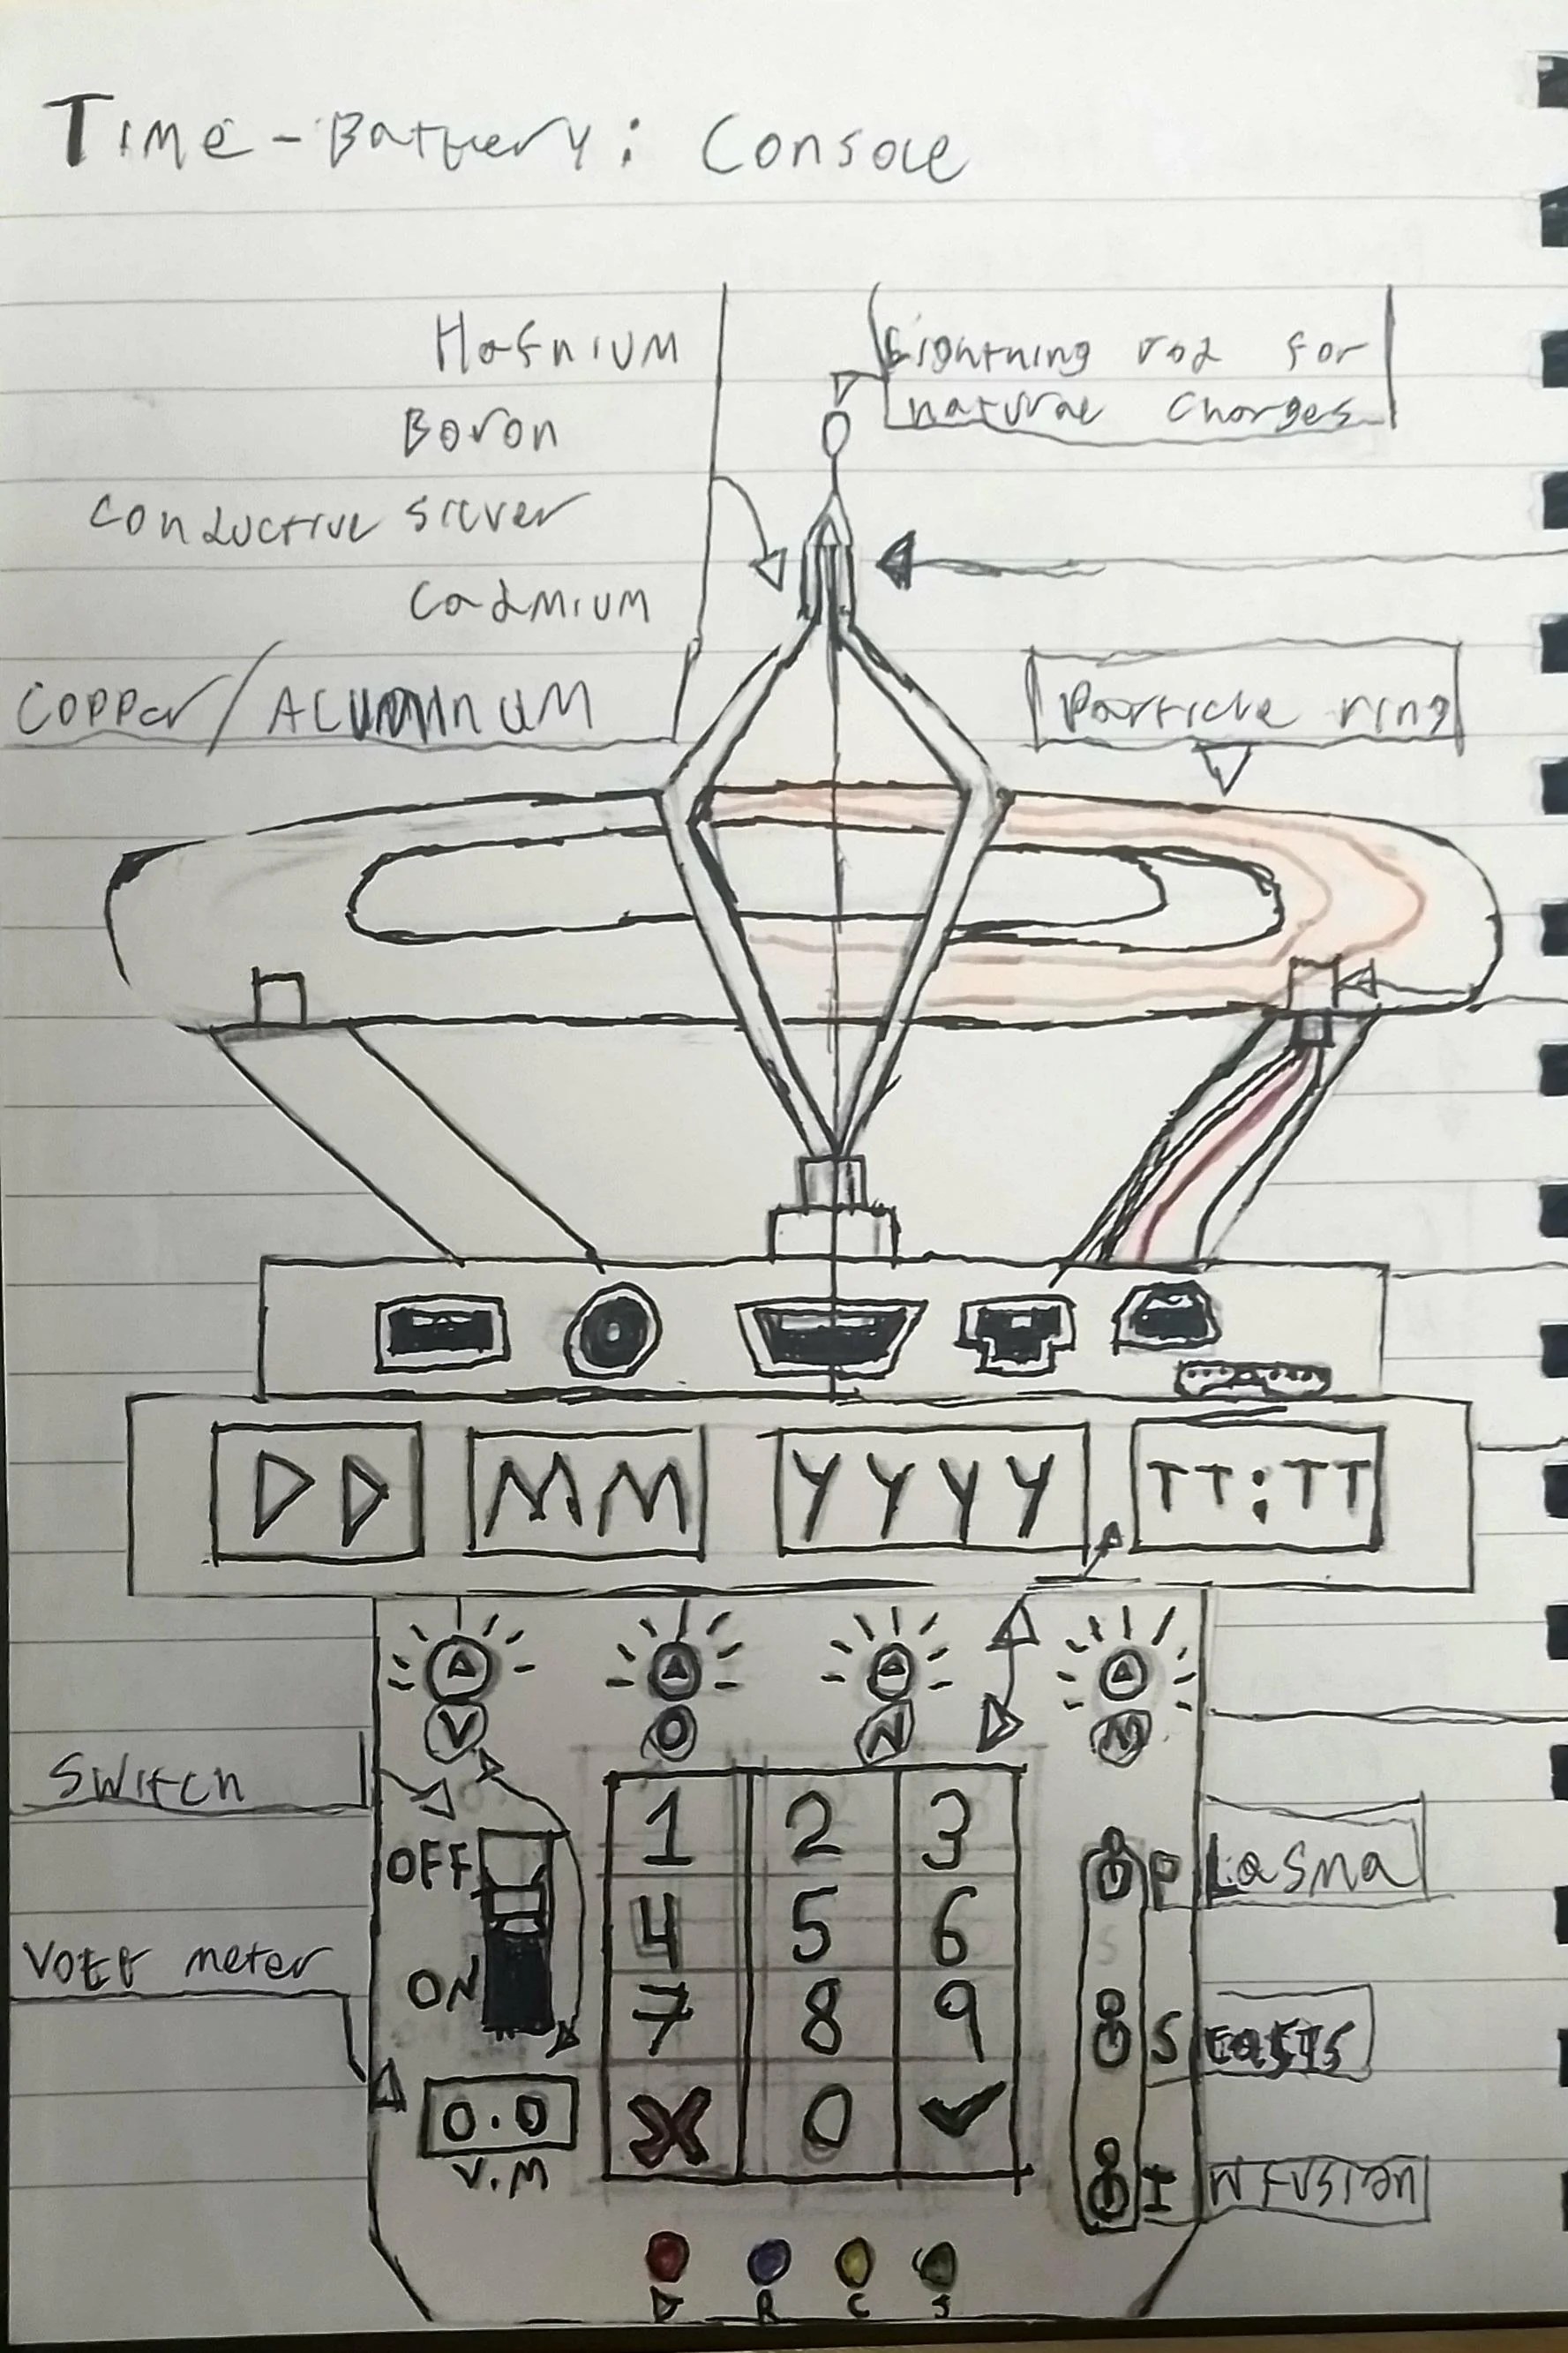 Time-Battery: Console
Hafnium
Boron
Conductive silver
Cadmium
Copper/ALUMINUM
Lightning rod for
natural charges
Particle ring
DD MM YYYY TT:TT
V O N M
Switch
OFF
ON
Volt meter
0.0
V.M
1 2 3
4 5 6
7 8 9
X 0 ✓
PLasma
S
INFUSION
D R C S